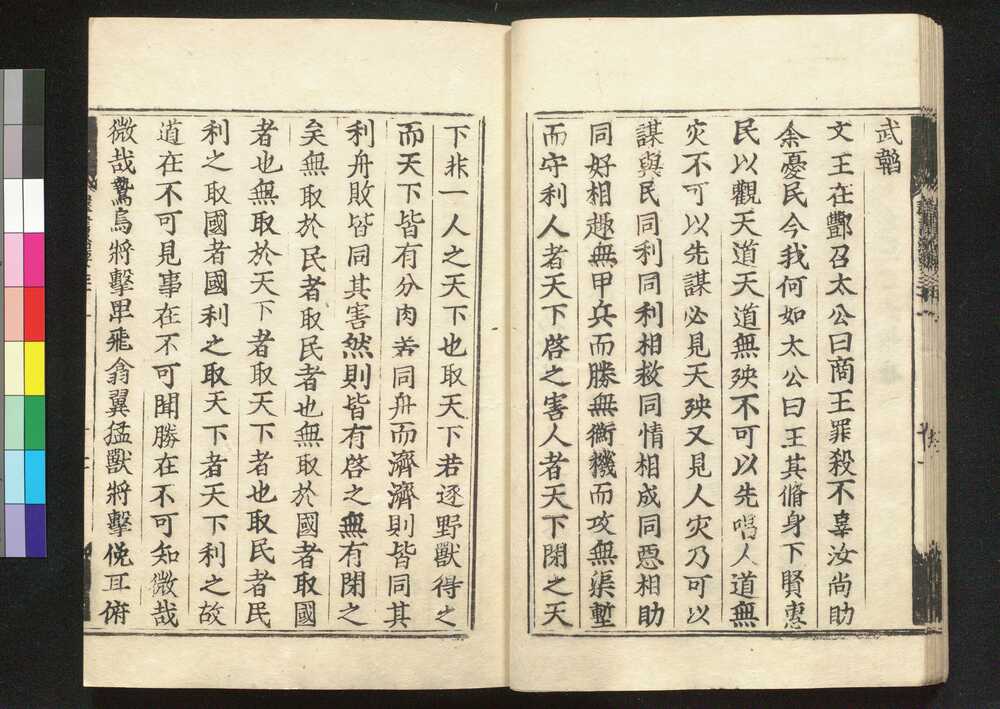 武韜
文王在酆召太公曰商王罪殺不辜汝尚助
余憂民今我何如太公曰王其脩身下賢惠
民以觀天道天道無殃不可以先唱人道無
灾不可以先謀必見天殃又見人灾乃可以
謀與民同利同利相救同情相成同惡相助
同好相趣無甲兵而勝無衝機而攻無渠塹
而守利人者天下啓之害人者天下閉之天
下非一人之天下也取天下若逐野獸得之
而天下皆有分肉若同舟而濟濟則皆同其
利舟敗皆同其害然則皆有啓之無有閉之
矣無取於民者取民者也無取於國者取國
者也無取於天下者取天下者也取民者民
利之取國者國利之取天下者天下利之故
道在不可見事在不可聞勝在不可知微哉
微哉鷙鳥將擊卑飛翕翼猛獸將擊俛耳俯